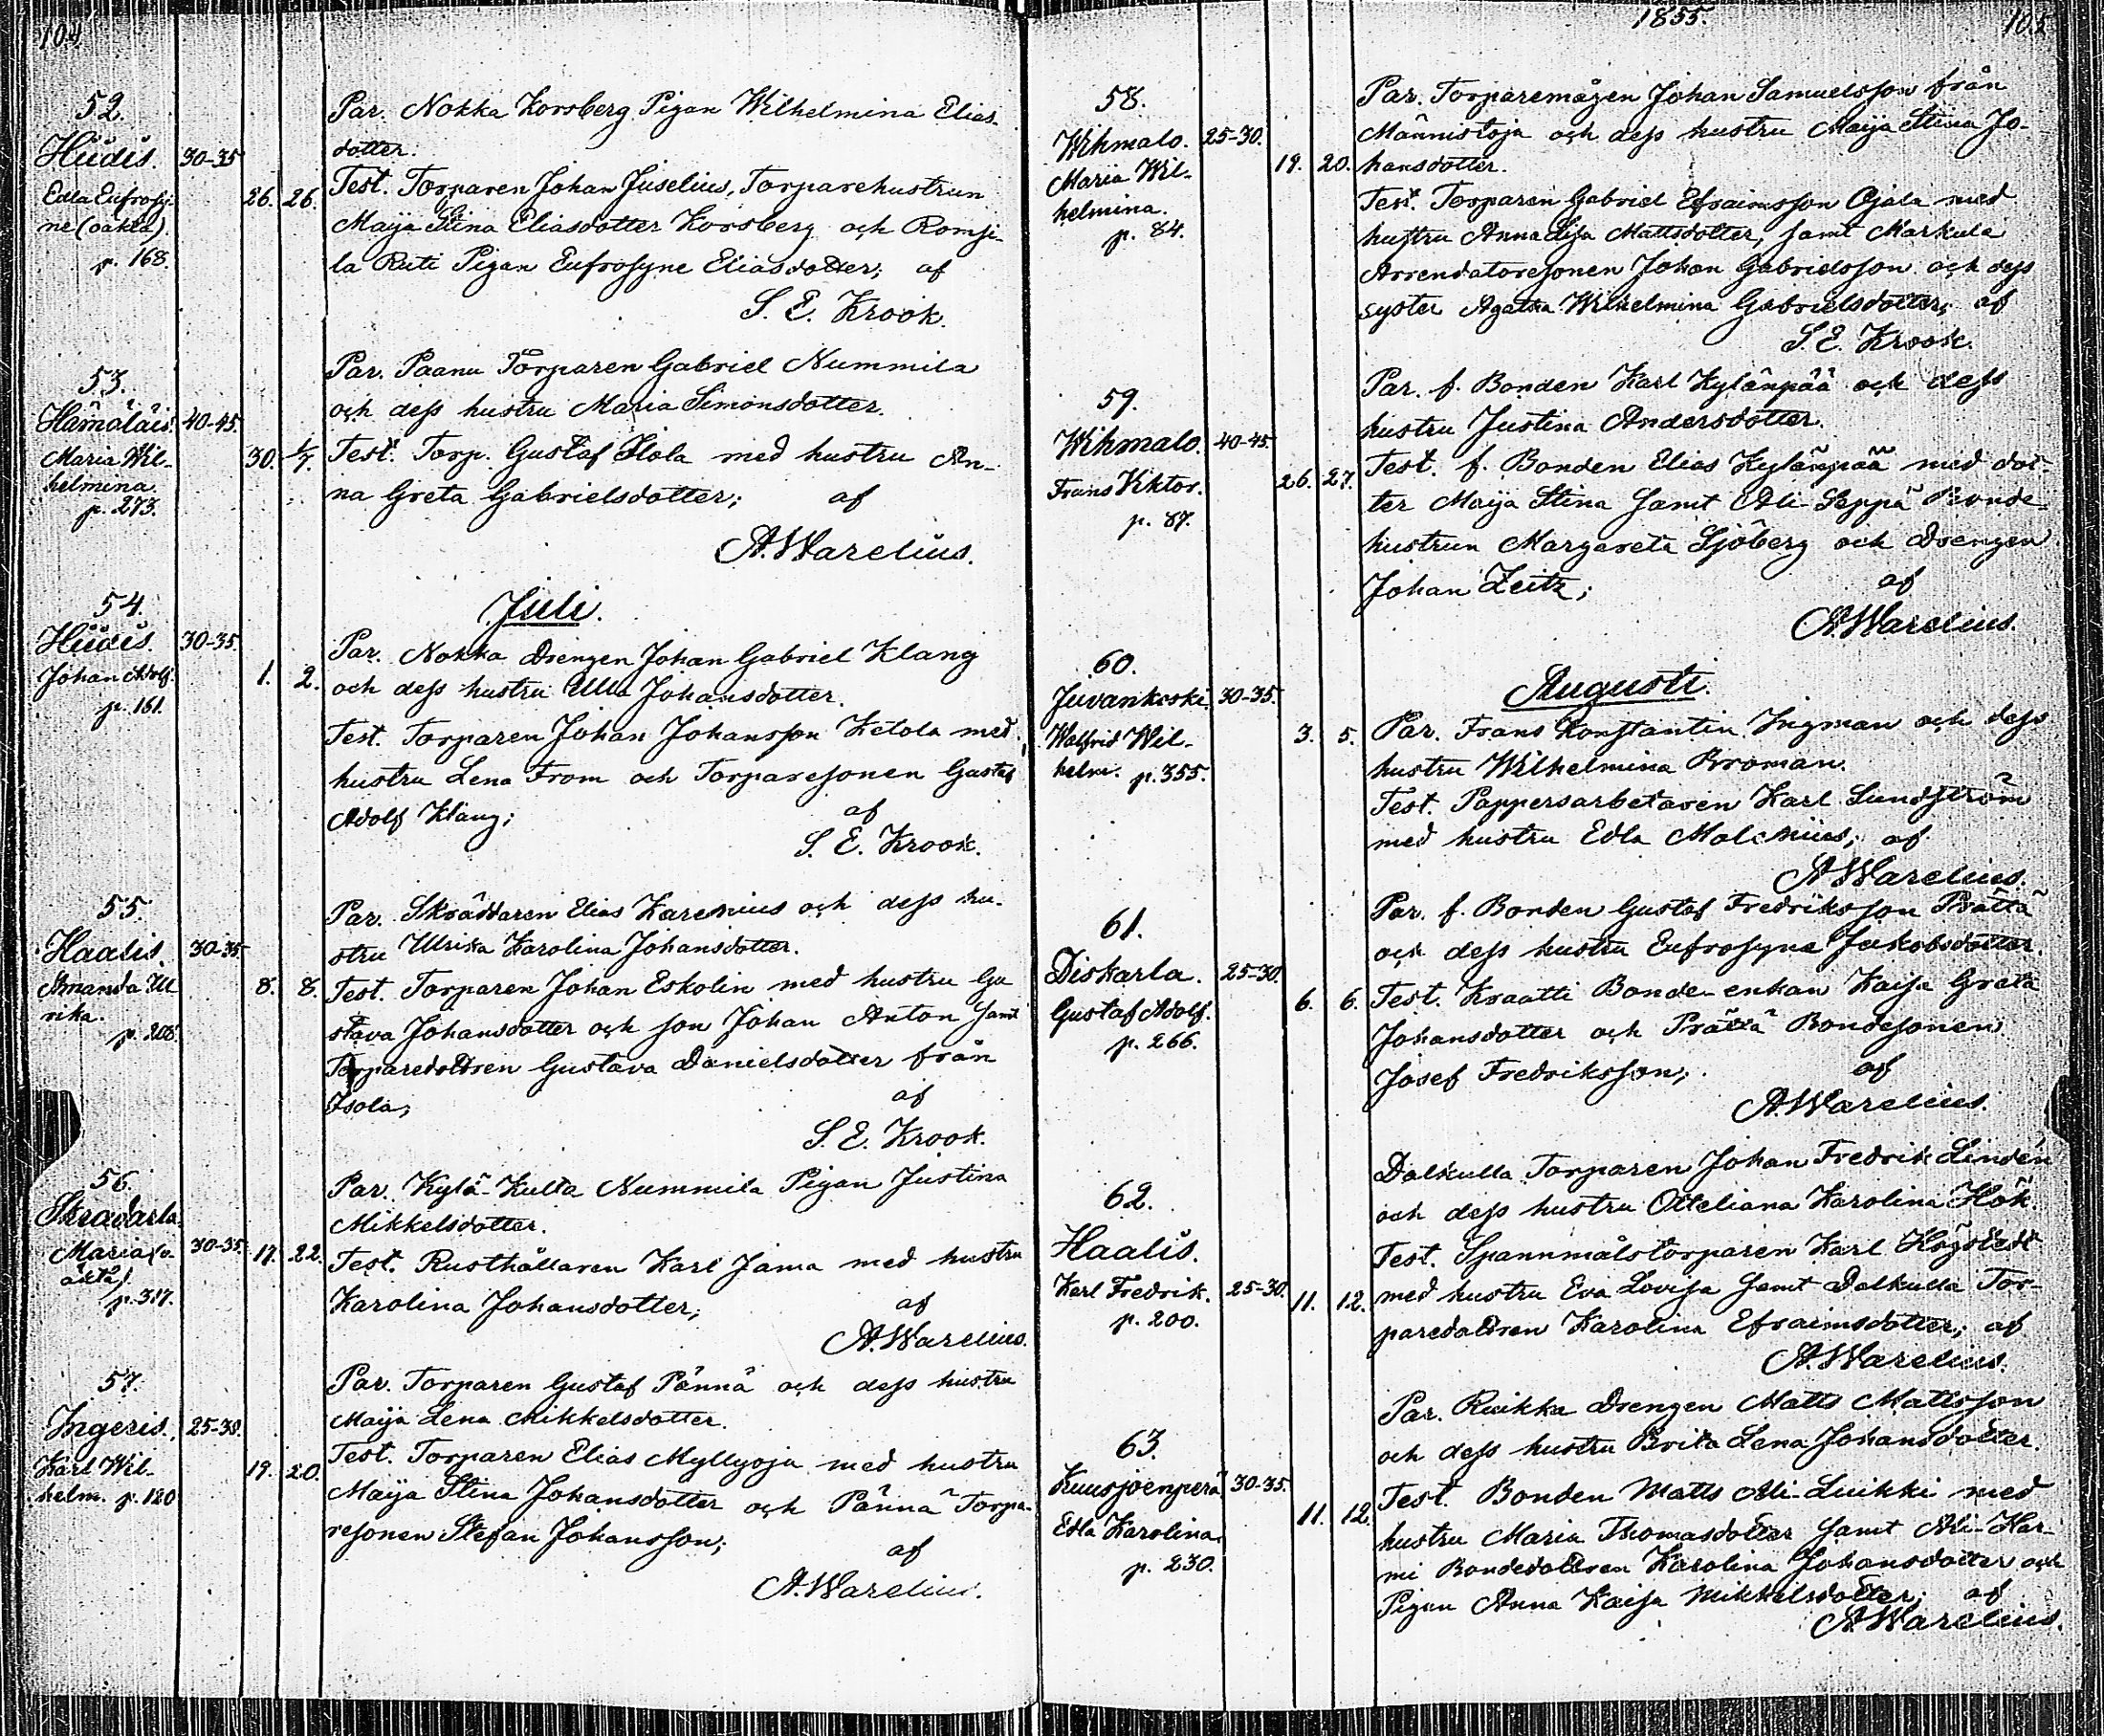 104
52.
Hiidis. 30-35
Edla Eufrosy-
ne (oäkta)
p. 168.
26. 26.
Par. Nokka Korsberg Pigan Wilhelmina Elias-
dotter.
Test. Torparen Johan Juselius, Torparehustrun
Maija Stina Eliasdotter Korsberg och Romsi-
la Ruti Pigan Eufrosyne Eliasdotter; af
S. E. Krook.
53.
Hämäläis. 40-45.
Maria Wil-
helmina.
p. 273.
30. 1/7.
Par. Paanu Torparen Gabriel Nummila
och dess hustru Maria Simonsdotter.
Test. Torp. Gustaf Iiola med hustru An-
na Greta Gabrielsdotter; af
A. Warelius.
Juli.
54.
Hiidis. 30-35
Johan Adolf.
p. 161.
1. 2.
Par. Nokka Drengen Johan Gabriel Klang
och dess hustru Ulla Johansdotter.
Test. Torparen Johan Johansson Ketola med
hustru Lena From och Torparesonen Gustaf
Adolf Klang; af
S. E. Krook.
55.
Haalis. 30-35
Amanda Ul-
rika.
8. 8.
Par. Skräddaren Elias Karenius och dess hu-
stru Ulrika Karolina Johansdotter.
Test. Torparen Johan Eskolin med hustru Gu
stava Johansdotter och son Johan Anton samt
Torparedottren Gustava Danielsdotter från
Isola; af
S. E. Krook.
56.
Skradarla.
Maria (o-
äkta)
p. 317.
30-35. 17. 22.
Par. Kylä-Kulta Nummila Pigan Justina
Mikkelsdotter.
Test. Rusthållaren Karl Jama med hustru
Karolina Johansdotter; af
A. Warelius.
57.
Ingeris. 25-30.
Karl Wil-
helm. p. 120
19. 20.
Par. Torparen Gustaf Pännä och dess hustru
Maija Lena Mikkelsdotter.
Test. Torparen Elias Myllyoja med hustru
Maija Stina Johansdotter och Pännä Torpa-
resonen Stefan Johansson; af
A. Warelius.
1855. 105
58.
Wihmalo. 25-30.
Maria Wil-
helmina.
p. 84.
19. 20.
Par. Torparemågen Johan Samuelsson från
Männistöja och dess hustru Maija Stina Jo-
hansdotter.
Test. Torparen Gabriel Efraimsson Ojala med
hustru Anna Lisa Mattsdotter, samt Markula
Arrendatoresonen Johan Gabrielsson och dess
syster Agatha Wilhelmina Gabrielsdotter; af
S. E. Krook.
59.
Wihmalo. 40-45.
Frans Viktor.
p. 87.
26. 27.
Par. f. Bonden Karl Kylänpää och dess
hustru Justina Andersdotter.
Test. f. Bonden Elias Kylänpää med dot-
ter Maija Stina samt Ali-Seppä Bonde-
hustrun Margareta Sjöberg och Drengen
Johan Leitz; af
A. Warelius.
Augusti.
60.
Juvankoski. 30-35.
Walfrid Wil-
helm. p. 355.
3. 5.
Par. Frans Konstantin Ingman och dess
hustru Wilhelmina Broman.
Test. Pappersarbetaren Karl Sundström
med hustru Edla Malenius; af
A. Warelius.
61.
Diskarla. 25-30.
Gustaf Adolf.
p. 266.
6. 6.
Par. f. Bonden Gustaf Fredriksson Prättä
och dess hustru Eufrosyne Jakobsdotter.
Test. Kraatti Bonde-enkan Kaisa Greta
Johansdotter och Prättä Bondesonen
Josef Fredriksson; af
A. Warelius.
62.
Haalis.
Karl Fredrik. 25-30.
p. 200.
11. 12.
Dalkulla Torparen Johan Fredrik Lindén
och dess hustru Otteliana Karolina Hök.
Test. Spannmålstorparen Karl Högstedt
med hustru Eva Lovisa samt Dalkulla Tor-
paredottren Karolina Efraimsdotter; af
A. Warelius.
63.
Kuusjoenperä 30-35.
Edla Karolina.
p. 230.
11. 12.
Par. Ruikka Drengen Matts Mattsson
och dess hustru Brita Lena Johansdotter.
Test. Bonden Matts Ali-Luikki med
hustru Maria Thomasdotter samt Ali-Har-
mi Bondedottren Karolina Johansdotter och
Pigan Anna Kaisa Mikkelsdotter; af
A. Warelius.